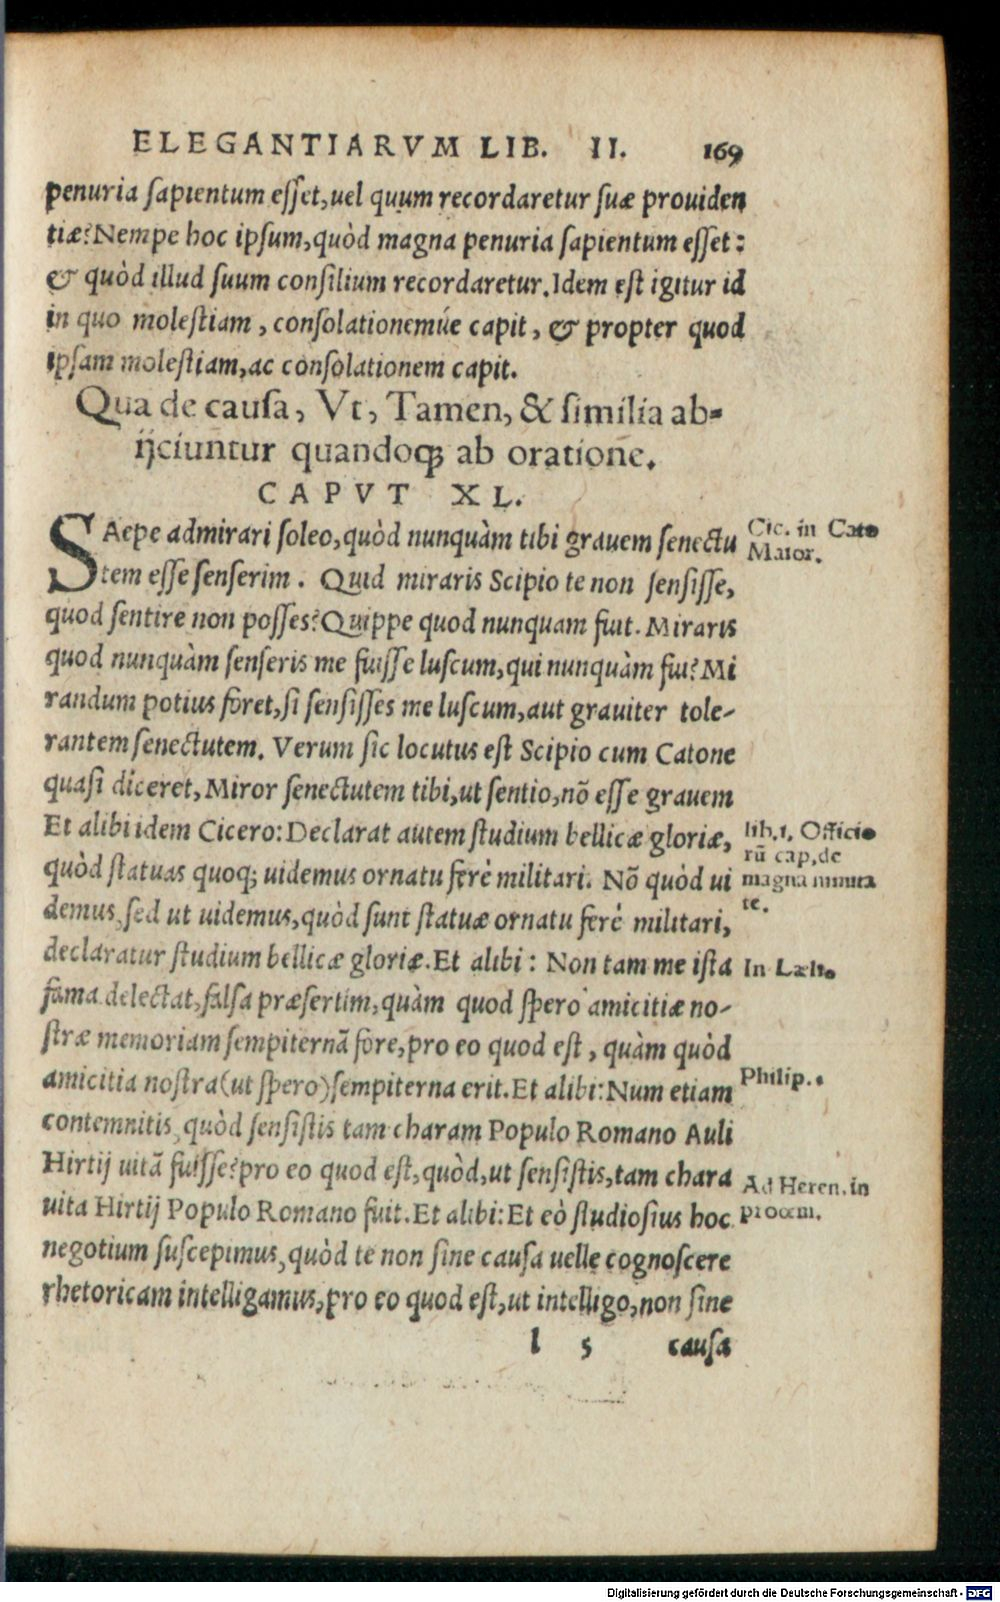 ELEGANTIARVM LIB. II. 169
penuria sapientum esset, uel quum recordaretur suæ prouiden
tiæ? Nempe hoc ipsum, quòd magna penuria sapientum esset:
& quòd illud suum consilium recordaretur. Idem est igitur id
in quo molestiam, consolationemúe capit, & propter quod
ipsam molestiam, ac consolationem capit.
Qua de causa, Vt, Tamen, & similia ab-
ijciuntur quandoq; ab oratione.
CAPVT XL.
SAepe admirari soleo, quòd nunquàm tibi grauem senectu
Cic. in Cato
Maior.
tem esse senserim. Quid miraris Scipio te non sensisse,
quod sentire non posses? Quippe quod nunquam fuit. Miraris
quod nunquàm senseris me fuisse luscum, qui nunquàm fui? Mi
randum potius foret, si sensisses me luscum, aut grauiter tole-
rantem senectutem. Verum sic locutus est Scipio cum Catone
quasi diceret, Miror senectutem tibi, ut sentio, nõ esse grauem
Et alibi idem Cicero: Declarat autem studium bellicæ gloriæ,
lib. 1. Officio
rũ cap. de
magnanimita
te.
quòd statuas quoq; uidemus ornatu ferè militari. Nõ quòd ui
demus, sed ut uidemus, quòd sunt statuæ ornatu ferè militari,
declaratur studium bellicæ gloriæ. Et alibi: Non tam me ista
In Lælio
fama delectat, falsa præsertim, quàm quod spero amicitiæ no-
stræ memoriam sempiternã fore, pro eo quod est, quàm quòd
amicitia nostra (ut spero) sempiterna erit. Et alibi: Num etiam
Philip. 1
contemnitis, quòd sensistis tam charam Populo Romano Auli
Hirtij uitã fuisse? pro eo quod est, quòd, ut sensistis, tam chara
Ad Heren. in
proœm.
uita Hirtij Populo Romano fuit. Et alibi: Et eò studiosius hoc
negotium suscepimus, quòd te non sine causa uelle cognoscere
rhetoricam intelligamus, pro eo quod est, ut intelligo, non sine
l 5 causa
Digitalisierung gefördert durch die Deutsche Forschungsgemeinschaft - DFG